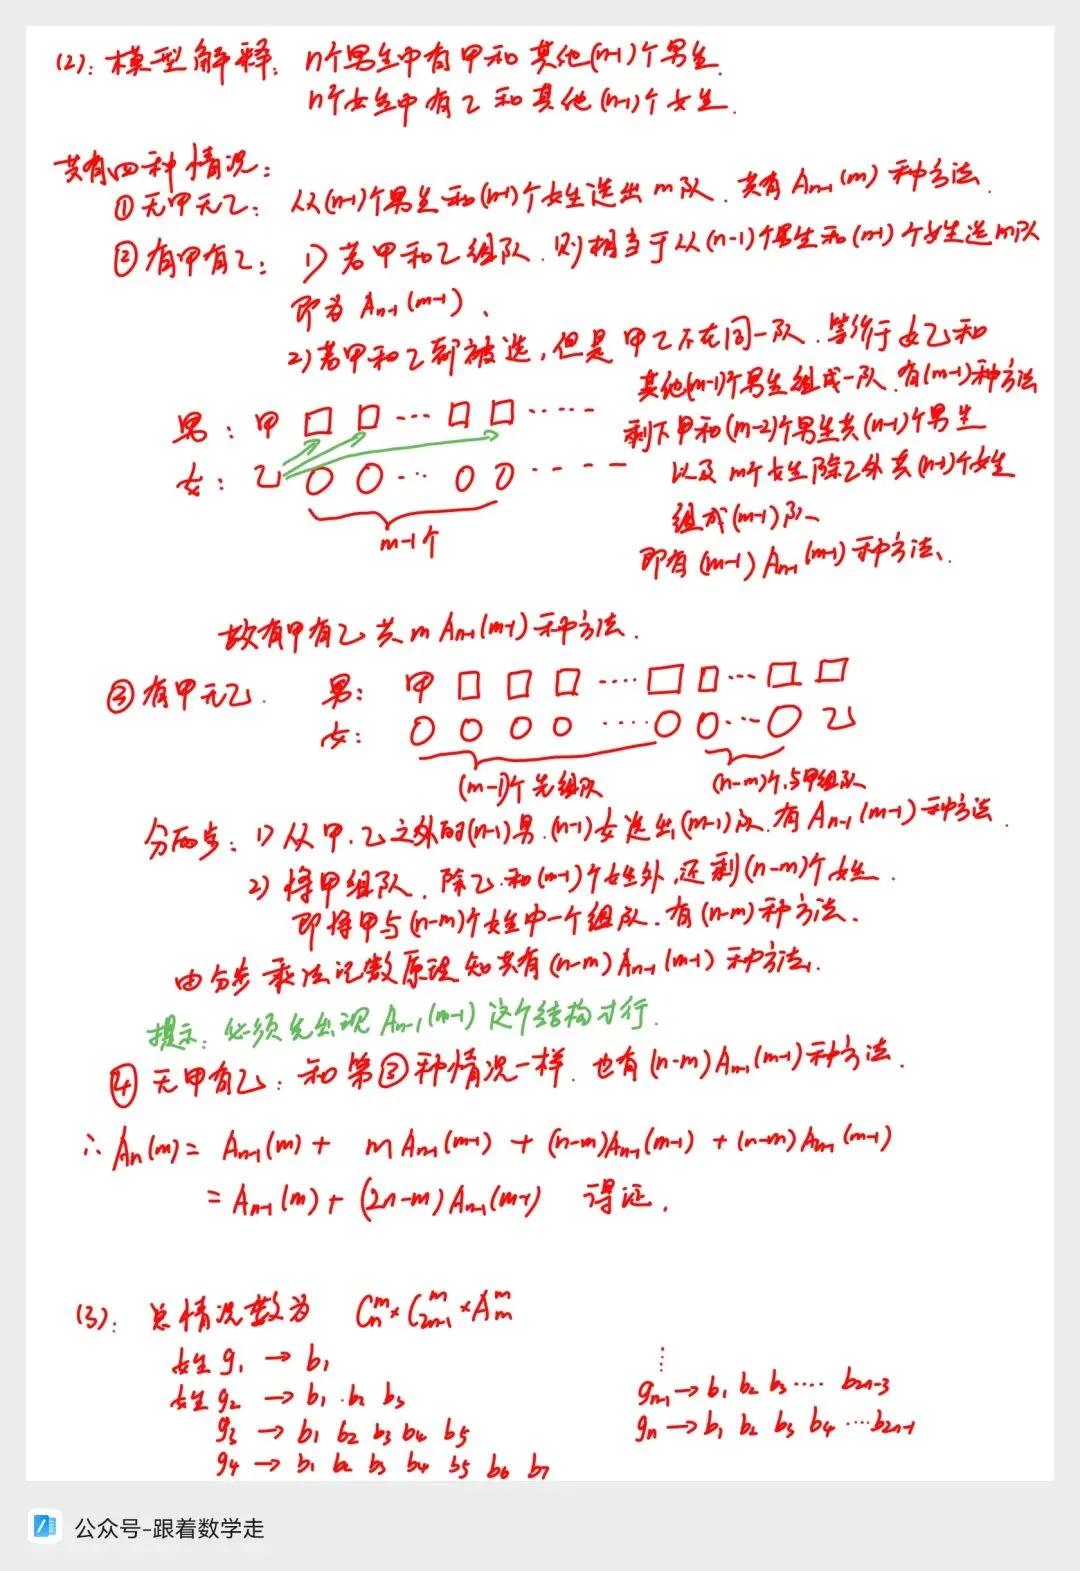 (2): 模型解释: n个男生中有甲和其他(n-1)个男生.
n个女生中有乙和其他(n-1)个女生.
共有四种情况:
①无甲无乙: 从(n-1)个男生和(n-1)个女生选出m队. 共有 An-1(m) 种方法.
②有甲有乙: 1) 若甲和乙组队. 则相当于从(n-1)个男生和(n-1)个女生选m队
即为 An-1(m-1).
2) 若甲和乙都被选, 但是甲乙不在同一队. 等价于女乙和
其他(m-1)个男生组成一队. 有(m-1)种方法
剩下甲和(m-2)个男生共(n-1)个男生
以及m个女生除乙外共(n-1)个女生
组成(m-1)队
即有 (m-1) An-1(m-1) 种方法.
男: 甲 □ □ ··· □ □ ·····
女: 乙 ○ ○ ··· ○ ○ ·····
m-1个
故有甲有乙共 m An-1(m-1) 种方法.
③有甲无乙. 男: 甲 □ □ □ ···· □ □ ··· □ □
女: ○ ○ ○ ○ ···· ○ ○ ··· ○ 乙
(m-1)个先组队 (n-m)个与甲组队
分两步: 1) 从甲.乙之外的(n-1)男.(n-1)女选出(m-1)队. 有 An-1(m-1) 种方法.
2) 将甲组队. 除乙和(m-1)个女生外, 还剩(n-m)个女生.
即将甲与(n-m)个女生中一个组队. 有(n-m)种方法.
由分步乘法记数原理知共有 (n-m) An-1(m-1) 种方法.
提示: 必须先出现 An-1(m-1) 这个结构才行.
④ 无甲有乙: 和第③种情况一样. 也有 (n-m) An-1(m-1) 种方法.
∴ An(m) = An-1(m) + m An-1(m-1) + (n-m)An-1(m-1) + (n-m) An-1(m-1)
= An-1(m) + (2n-m) An-1(m-1) 得证.
(3): 总情况数为 C_n^m × C_{2n-1}^m × A_m^m
女生 g1 → b1
女生 g2 → b1 b2 b3
g3 → b1 b2 b3 b4 b5
g4 → b1 b2 b3 b4 b5 b6 b7
⋮
gn-1 → b1 b2 b3 ···· b2n-3
gn → b1 b2 b3 b4 ··· b2n-1
公众号-跟着数学走